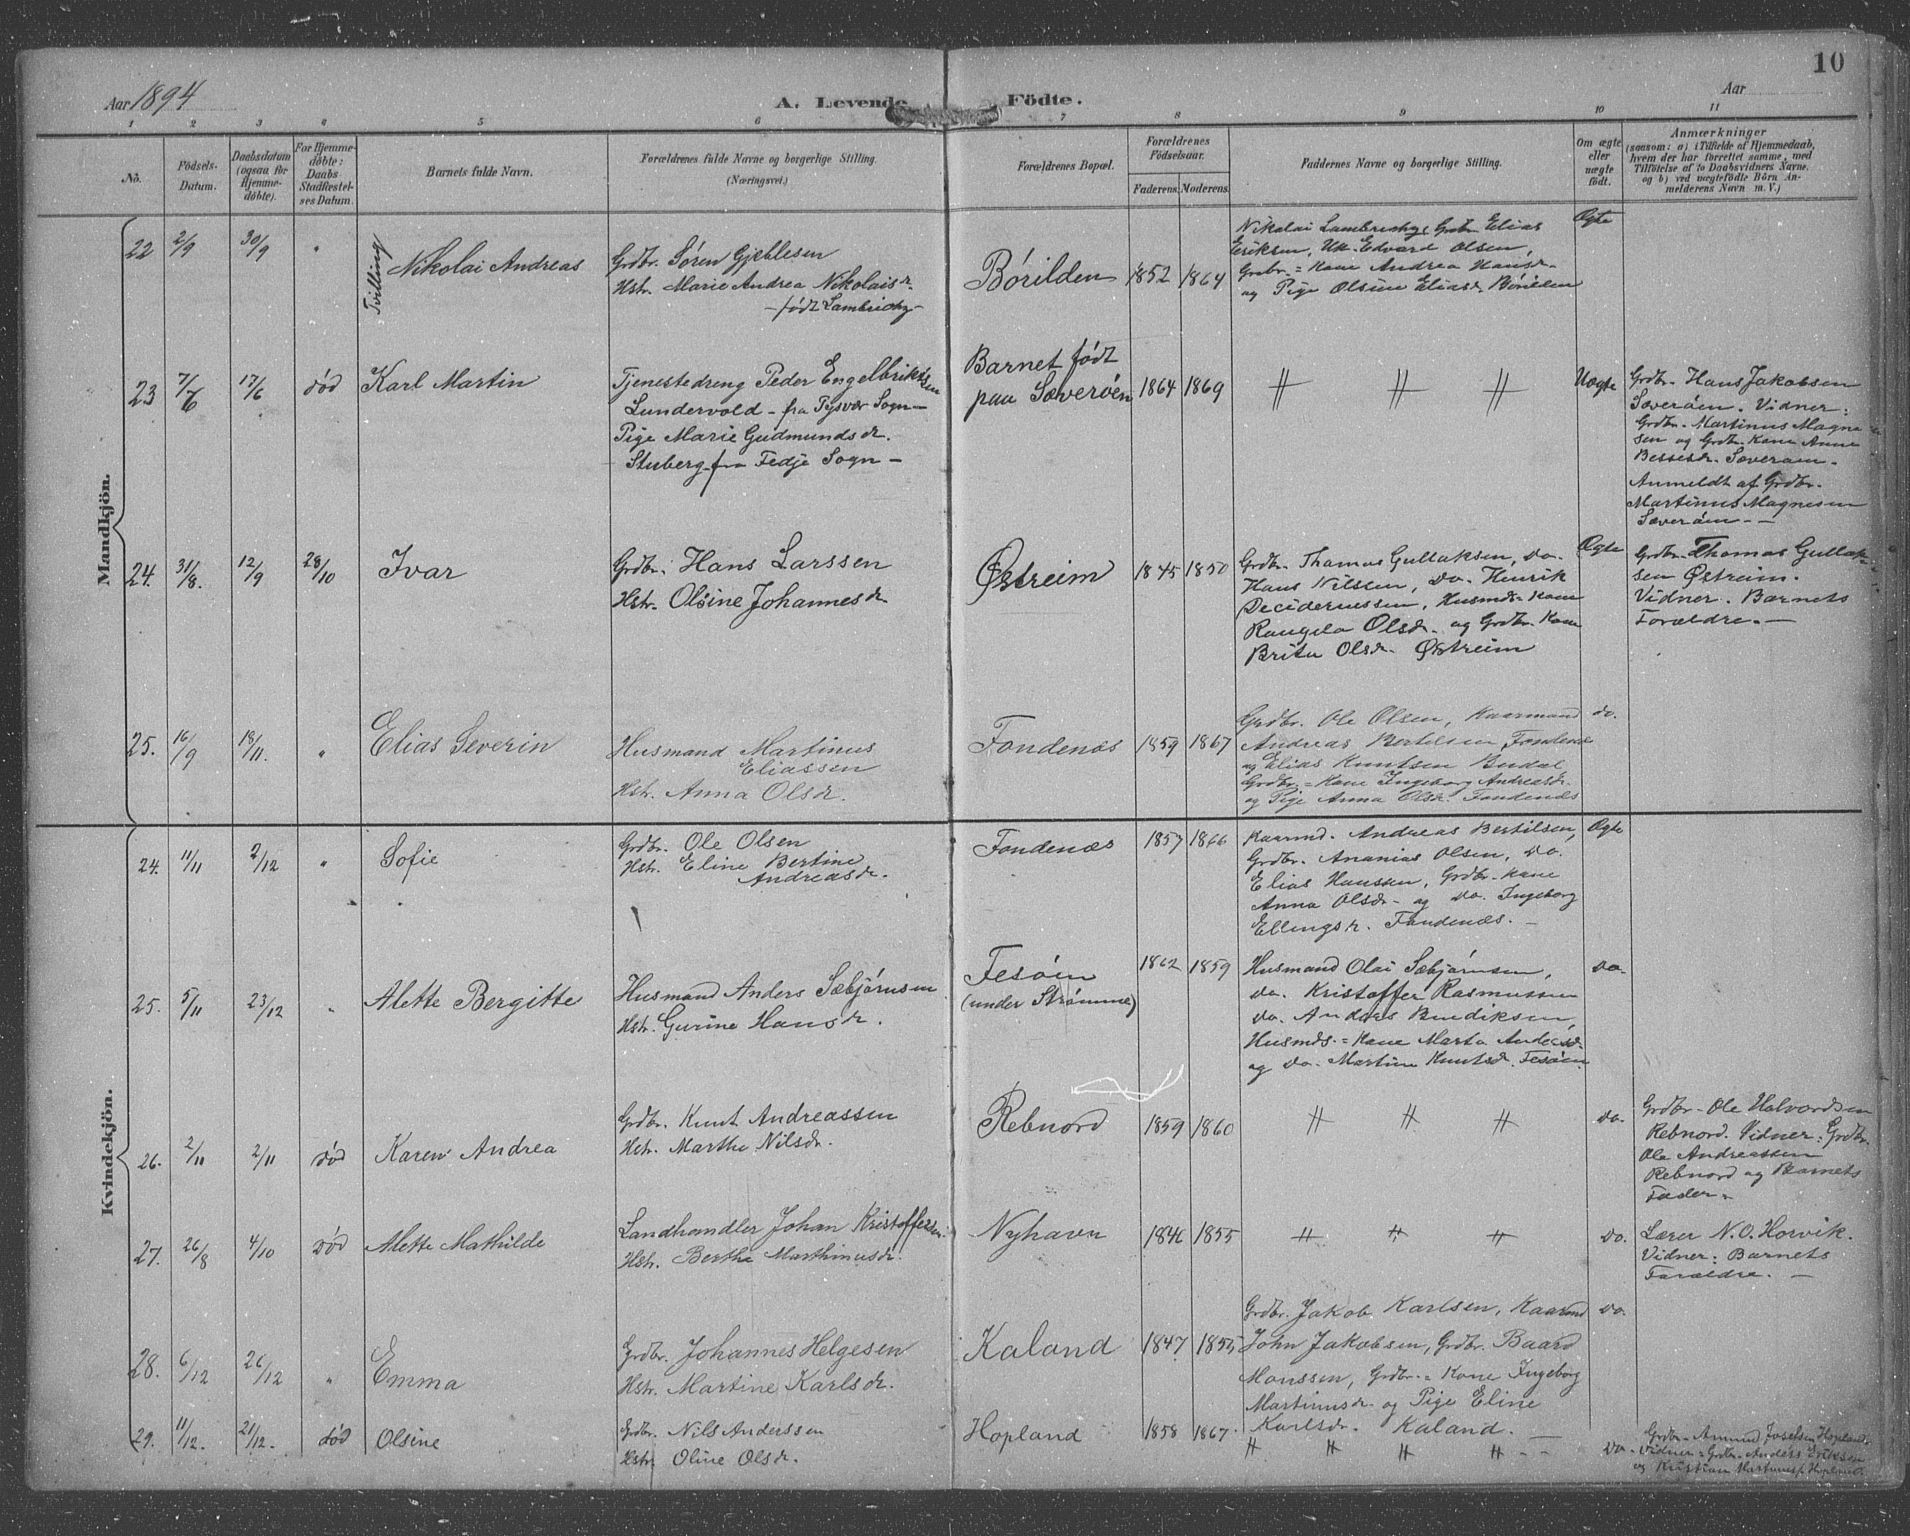 10
Aar 1894
A. Levende Födte.
Aar
1 2 3 4 5 6 7 8 9 10 11
No.
Födsels-
Datum.
Daabsdatum
(ogsaa for
Hjemme-
döbte).
For Hjemme-
döbte:
Daabs
Stadfæstel-
ses Datum.
Barnets fulde Navn.
Forældrenes fulde Navne og borgerlige Stilling.
(Næringsvei.)
Forældrenes Bopæl.
Forældrenes
Födselsaar.
Faderens. Moderens.
Faddernes Navne og borgerlige Stilling.
Om ægte
eller
uægte
födt.
Anmærkninger
(saasom: a) i Tilfælde af Hjemmedaab,
hvem der har forrettet samme, med
Tilföielse af to Daabsvidners Navne,
og b) ved uægtefödte Börn An-
melderens Navn m. V.)
Mandkjön.
22 2/9 30/9 "
Tvilling
Nikolai Andreas
Grdbr. Søren Gjeblesen
Hstr. Marie Andrea Nikolaisdr.
- født Lambrichg-
Börilden 1852 1864
Nikolai Lambrichg, Grdbr. Elias
Eriksen, Uk. Edvard Olsen,
Grdbr.=Kone Andrea Hansdr.
og Pige Olsine Eliasdr. Börilden
Ægte
23 7/6 17/6 død
Karl Martin
Tjenestedreng Peder Engelbriktsen
Lundervold - fra Tysvær Sogn -
Pige Marie Gudmundsdr.
Stuberg fra Fedje Sogn -
Barnet født
paa Sæverøen 1864 1869
" " "
Uægte
Grdbr. Hans Jakobsen
Sæverøen. Vidner:
Grdbr. Martinus Magne-
sen og Grdbr. Kone Anne
Bessesdr. Sæverøen.
Anmeldt af Grdbr.
Martinus Magnesen
Sæverøen. -
24. 31/8. 12/9 28/10
Ivar
Grdbr. Hans Larssen
Hstr. Olsine Johannesdr.
Østreim 1845 1850
Grdbr. Thomas Gullaksen, do.
Hans Nilssen, do. Henrik
Decideriussen, Husmds=Kone
Rangela Olsdr. og Grdbr. Kone
Brita Olsdr. Østreim
Ægte
Grdbr. Thomas Gullak-
sen Østreim.
Vidner. Barnets
Forældre. -
25. 16/9 18/11. "
Elias Severin
Husmand Martinus
Eliassen
Hstr. Anna Olsdr.
Fondenæs 1859 1867
Grdbr. Ole Olsen, Kaarmand
Andreas Bertilsen, Fondenæs
og Elias Knutsen Budal
Grdbr.=Kone Ingeborg Andreasdr.
og Pige Anna Olsdr. Fondenæs
do.
Kvindekjön.
24. 11/11 2/12 "
Sofie
Grdbr. Ole Olsen
Hstr. Eline Bertine
Andreasdr.
Fondenæs 1857 1866
Kaarmd. Andreas Bertilsen,
Grdbr. Ananias Olsen, do.
Elias Hanssen, Grdbr. Kone
Anna Olsdr. og do. Ingeborg
Ellingsdr. Fondenæs. -
Ægte
25. 5/11 23/12 "
Alette Bergitte
Husmand Anders Sæbjørnsen
Hstr. Gurine Hansdr.
Fesøen
(under Strømme) 1862 1859
Husmand Olai Sæbjørnsen,
do. Kristoffer Rasmussen
do. Anders Bendiksen,
Husmds.=Kone Marta Andersdr.
og do. Martine Knutsdr. Fesøen.
do.
26. 2/11 2/11 død
Karen Andrea
Grdbr. Knut Andreassen
Hstr. Marthe Nilsdr.
Rebnord 1859 1860
" " "
do.
Grdbr. Ole Halvordsen
Rebnord. Vidner: Grdbr.
Ole Andreassen
Rebnord og Barnets
Fader.
27. 26/8 4/10 død
Alette Mathilde
Landhandler Johan Kristoffersen
Hstr. Berthe Marthinusdr.
Nyhavn 1846 1855
" " "
do.
Lærer N. O. Horvik.
Vidner: Barnets
Forældre. -
28. 6/12 26/12 "
Emma
Grdbr. Johannes Helgesen
Hstr. Martine Karlsdr.
Kaland 1847 1855
Grdbr. Jakob Karlsen, Kaarmd
John Jakobsen, Grdbr. Baard
Monssen, Grdbr.=Kone Ingeborg
Martinusdr. og Pige Eline
Karlsdr. Kaland. -
do.
29. 11/12. 21/12. død
Olsine
Grdbr. Nils Anderssen
Hstr. Oline Olsdr.
Hopland 1858 1867.
" " " " - -
do.
Grdbr. Amund Josefsen Hopland.
Vidner: Grdbr. Anders Eriksen
og Kristian Hopland.